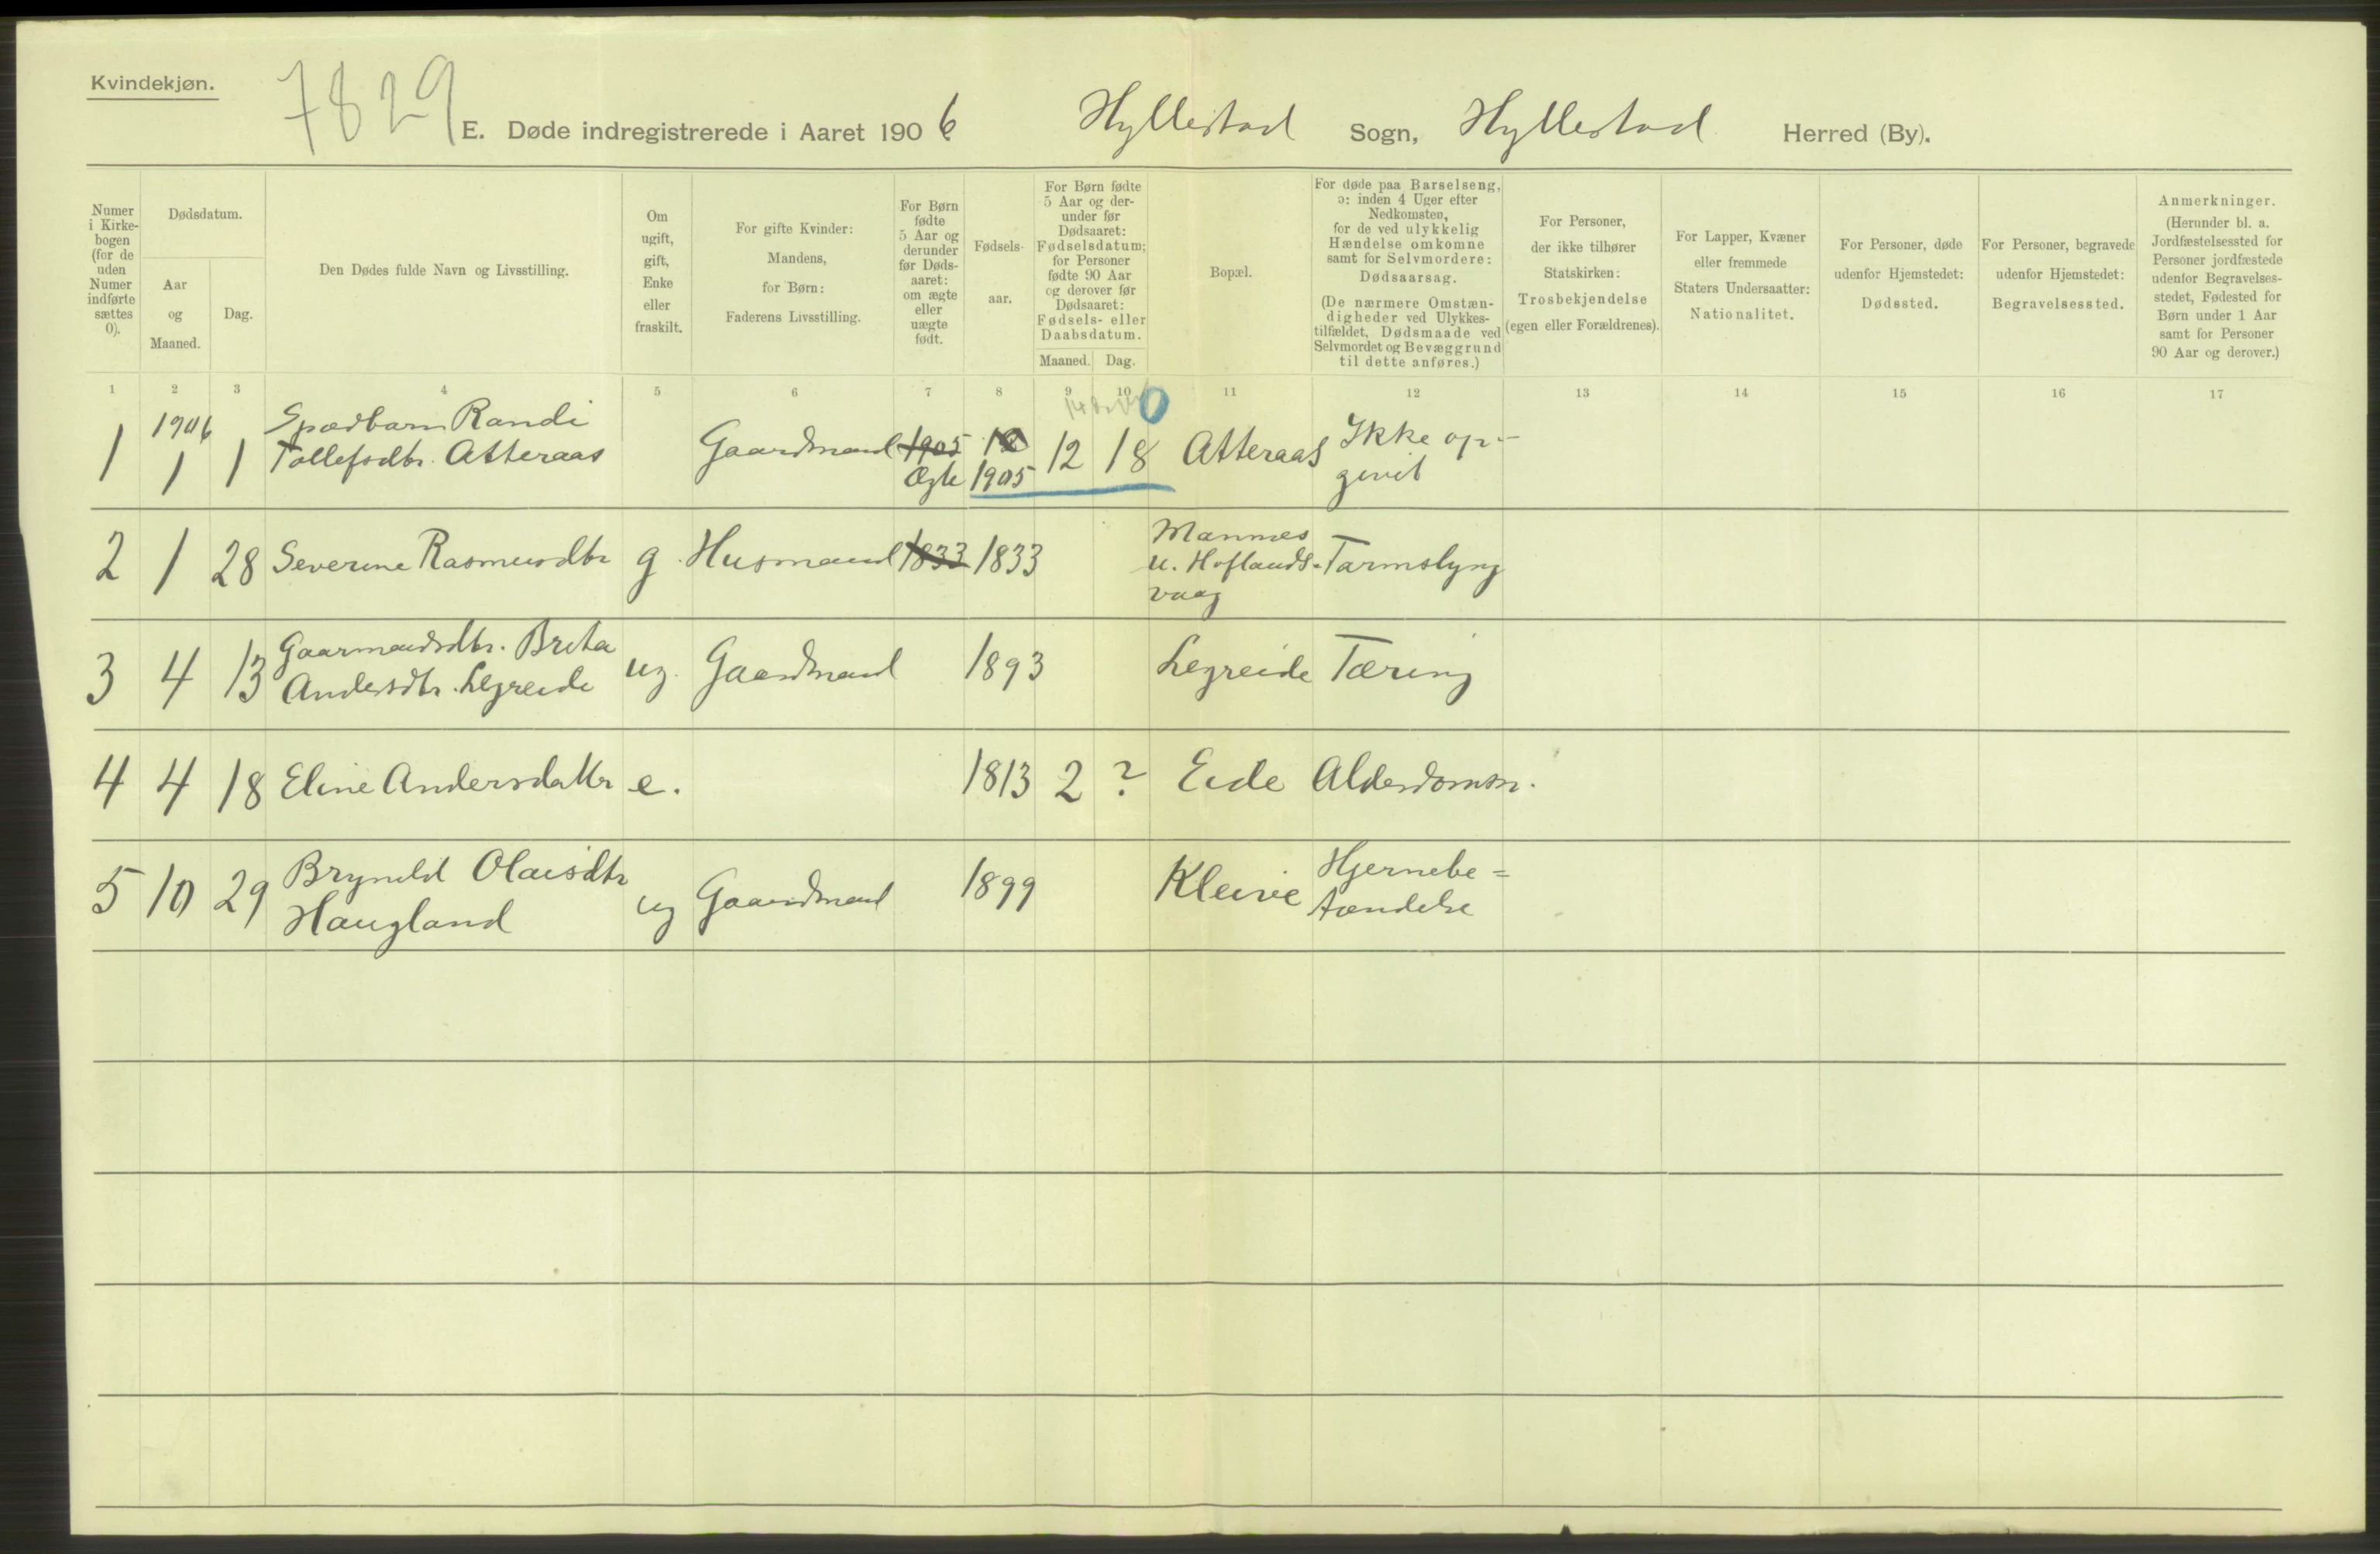 Kvindekjøn.
7829
E. Døde indregistrerede i Aaret 1906 Hyllestad Sogn, Hyllestad Herred (By).
Numer i Kirke-bogen (for de uden Numer indførte sættes 0).
Dødsdatum.
Aar og Maaned.
Dag.
Den Dødes fulde Navn og Livsstilling.
Om ugift, gift, Enke eller fraskilt.
For gifte Kvinder: Mandens, for Børn: Faderens Livsstilling.
For Børn fødte 5 Aar og derunder før Døds-aaret: om ægte eller uægte født.
Fødsels-aar.
For Børn fødte 5 Aar og der-under før Dødsaaret: Fødselsdatum; for Personer fødte 90 Aar og derover før Dødsaaret: Fødsels- eller Daabsdatum.
Maaned. Dag.
Bopæl.
For døde paa Barselseng, ɔ: inden 4 Uger efter Nedkomsten, for de ved ulykkelig Hændelse omkomne samt for Selvmordere: Dødsaarsag.
(De nærmere Omstæn-digheder ved Ulykkes-tilfældet, Dødsmaade ved Selvmordet og Bevæggrund til dette anføres.)
For Personer, der ikke tilhører Statskirken: Trosbekjendelse (egen eller Forældrenes).
For Lapper, Kvæner eller fremmede Staters Undersaatter: Nationalitet.
For Personer, døde udenfor Hjemstedet: Dødssted.
For Personer, begravede udenfor Hjemstedet: Begravelsessted.
Anmerkninger.
(Herunder bl. a. Jordfæstelsessted for Personer jordfæstede udenfor Begravelses-stedet, Fødested for Børn under 1 Aar samt for Personer 90 Aar og derover.)
1 2 3 4 5 6 7 8 9 10 11 12 13 14 15 16 17
0
1 1906 1 1 Spædbarn Randi Tollefsdtr. Atteraas Gaardmand 1905 Ægte 1905 12 18 Atteraas Ikke op-givet
2 1 28 Severine Rasmusdtr g. Husmand 1833 1833 Mannes u. Hoflands-vaag Tarmslyng
3 4 13 Gaarmandsdtr. Brita Andersdtr. Legreide ug. Gaardmand 1893 Legreide Tæring
4 4 18 Eline Andersdattr e. 1813 2 ? Eide Alderdomm.
5 10 29 Brynild Olaisdtr Haugland ug Gaardmand 1899 Kleive Hjernebe=tændelse